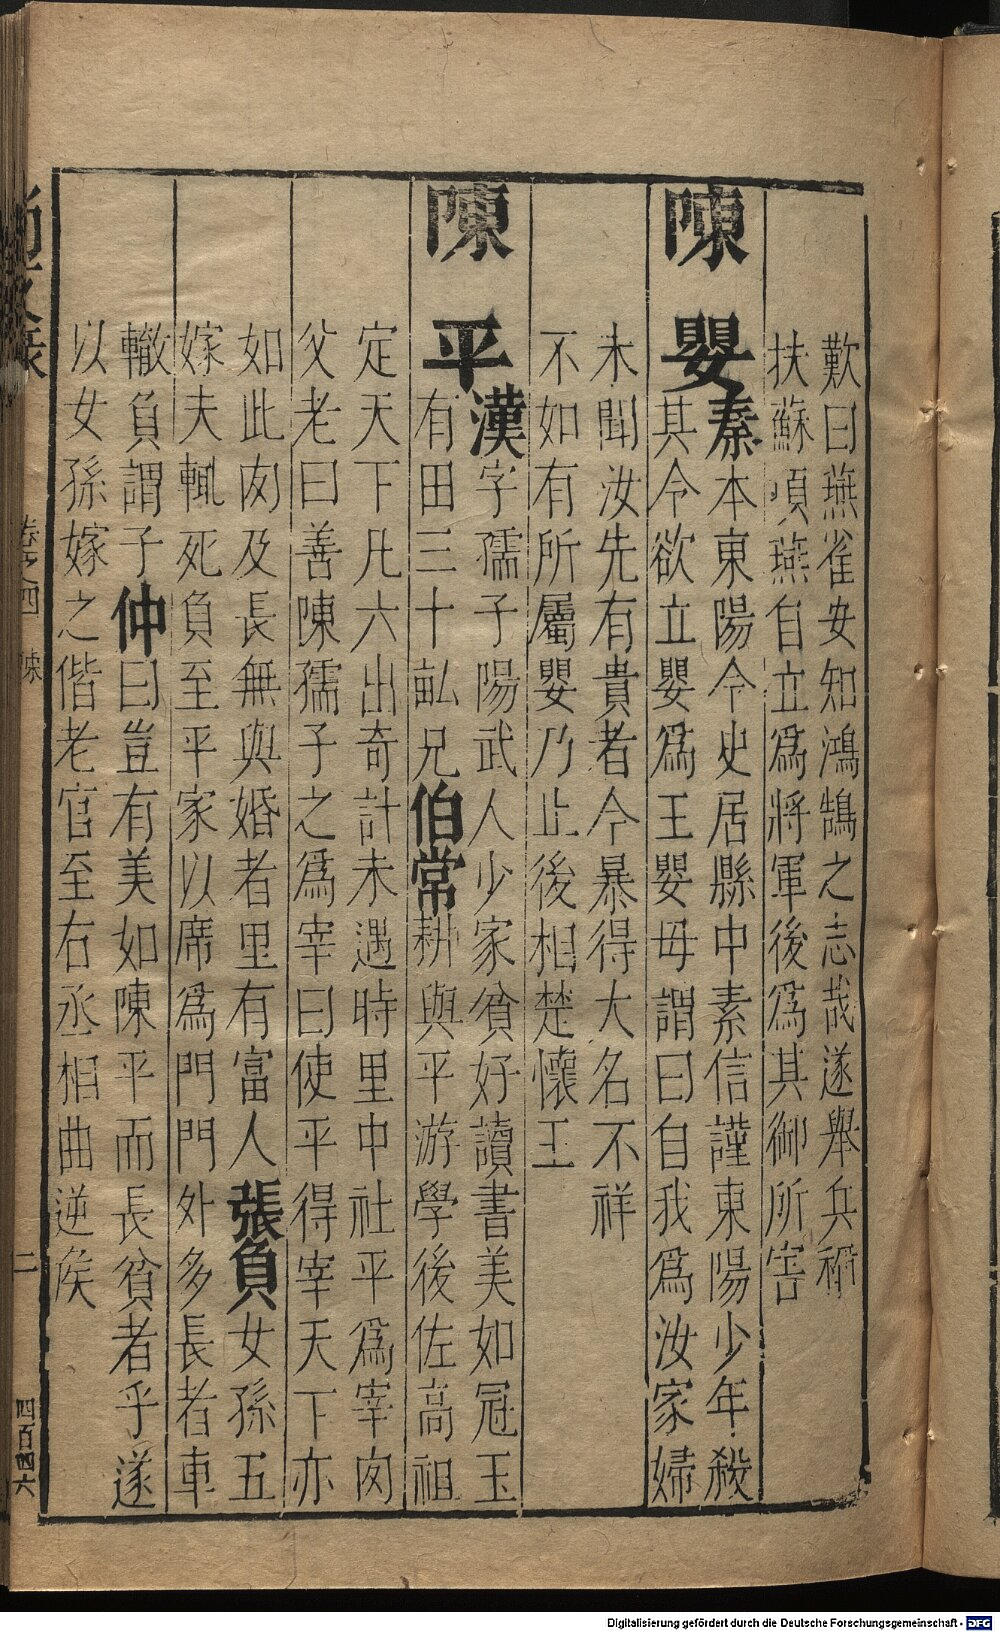 歎曰燕雀安知鴻鵠之志哉遂舉兵稱
扶蘇項燕自立爲將軍後爲其御所害
陳嬰秦本東陽令史居縣中素信謹東陽少年殺
其令欲立嬰爲王嬰母謂曰自我爲汝家婦
未聞汝先有貴者今暴得大名不祥
不如有所屬嬰乃止後相楚懷王
陳平漢字孺子陽武人少家貧好讀書美如冠玉
有田三十畝兄伯常耕與平游學後佐高祖
定天下凡六出奇計未遇時里中社平爲宰肉
父老曰善陳孺子之爲宰曰使平得宰天下亦
如此肉及長無與婚者里有富人張負女孫五
嫁夫輒死負至平家以席爲門門外多長者車
轍負謂子仲曰豈有美如陳平而長貧者乎遂
以女孫嫁之偕老官至右丞相曲逆侯
卷之四 陳 二 四百四六
Digitalisierung gefördert durch die Deutsche Forschungsgemeinschaft - DFG